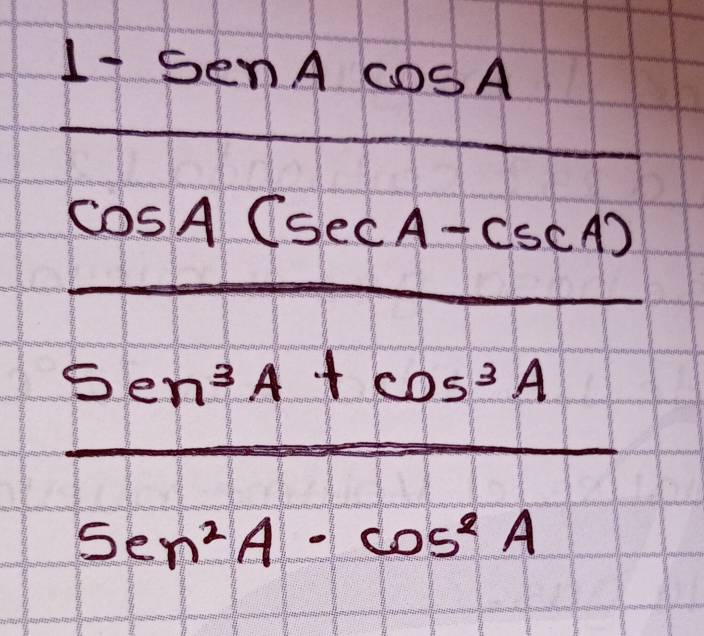 1 - sen A cos A
cos A (sec A - csc A)
sen³ A + cos³ A
sen² A - cos² A